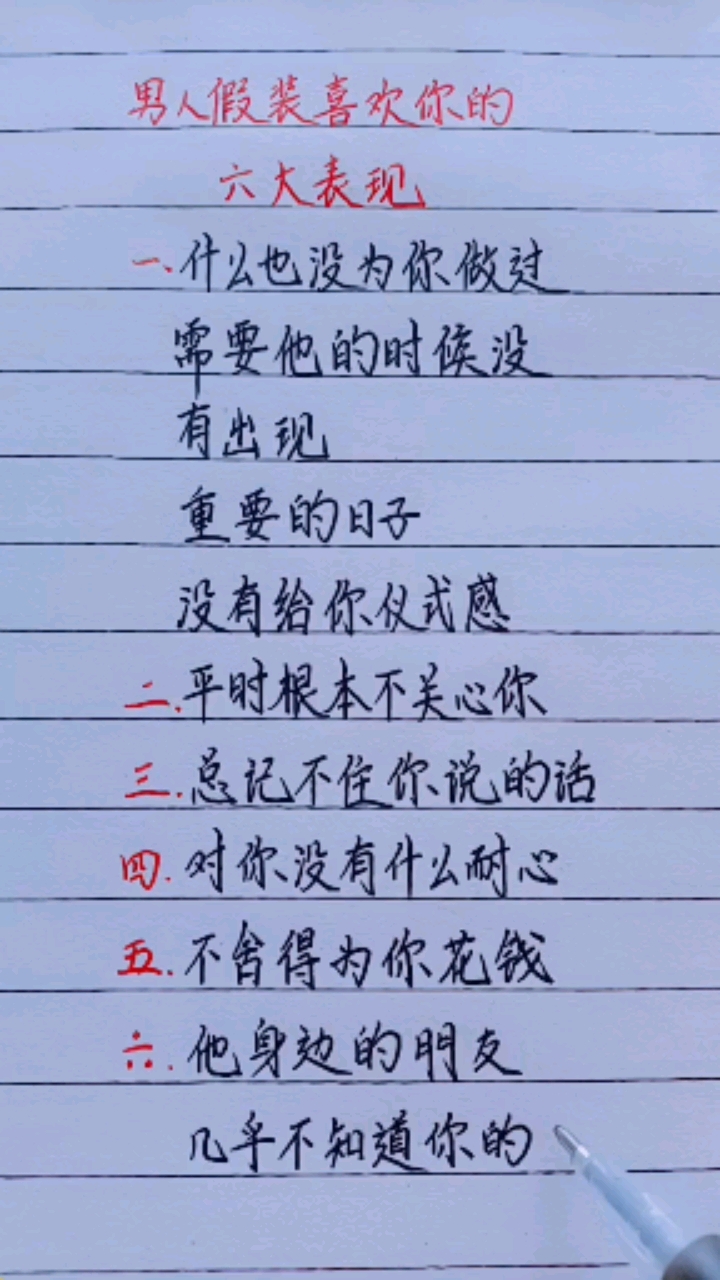 男人假装喜欢你的
六大表现
一.什么也没为你做过
需要他的时候没
有出现
重要的日子
没有给你仪式感
二.平时根本不关心你
三.总记不住你说的话
四.对你没有什么耐心
五.不舍得为你花钱
六.他身边的朋友
几乎不知道你的